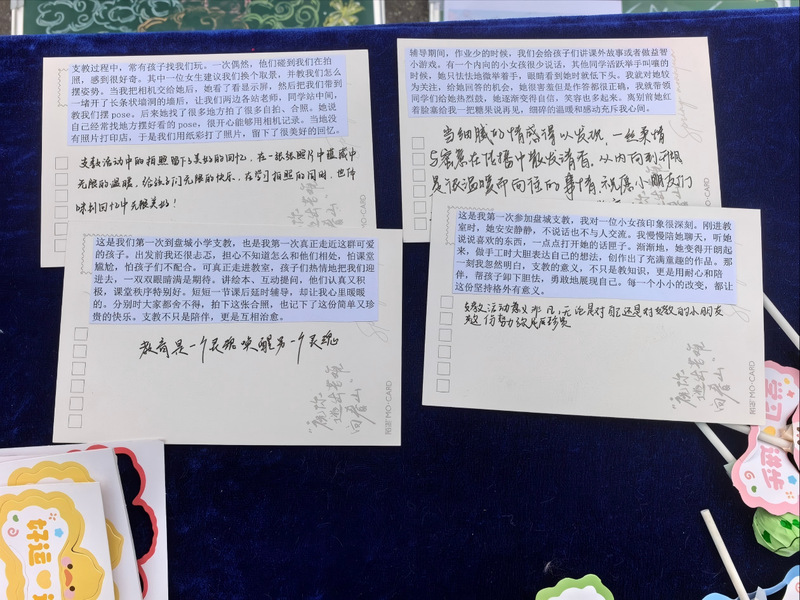 支教过程中，常有孩子找我们玩。一次偶然，他们碰到我们在拍
照，感到很好奇。其中一位女生建议我们换个取景，并教我们怎么
摆姿势。当我把相机交给她后，她看了看显示屏，然后把我们带到
一堵开了长条状墙洞的墙后，让我们两边各站老师，同学站中间，
教我们摆 pose。后来她找了很多地方拍了很多自拍、合照。她说
自己经常找地方摆好看的 pose，很开心能够用相机记录。当地没
有照片打印店，于是我们用纸彩打了照片，留下了很美好的回忆。
支教活动中的拍照留下了美好的回忆，在一张张照片中蕴藏中
无限的温暖，给孩子们无限的快乐，在学习拍照的同时，也体
味到回忆中无限美好！
“愿你
MO·CARD
辅导期间，作业少的时候，我们会给孩子们讲课外故事或者做益智
小游戏。有一个内向的小女孩很少说话，其他同学活跃举手叫嚷的
时候，她只怯怯地微举着手，眼睛看到她时就低下头。我就对她较
为关注，给她回答的机会，她很害羞但是作答都很正确，我就带领
同学们给她热烈鼓，她逐渐变得自信，笑容也多起来。离别前她红
着脸塞给我一把糖果说再见，细碎的温暖和感动充斥我心间。
当细腻的情感得以发现，一丝柔情
与蜜意在传播中散发清香，从内向到开朗
是很温暖而向往的事情，祝愿小朋友们
这是我们第一次到盘城小学支教，也是我第一次真正走近这群可爱
的孩子。出发前我还很忐忑，担心不知道怎么和他们相处，怕课堂
尴尬，怕孩子们不配合。可真正走进教室，孩子们热情地把我们迎
进去，一双双眼睛满是期待。讲绘本、互动提问，他们认真又积
极，课堂秩序特别好。短短一节课后延时辅导，却让我心里暖暖
的。分别时大家都舍不得，拍下这张合照，也记下了这份简单又珍
贵的快乐。支教不只是陪伴，更是互相治愈。
教育是一个灵魂唤醒另一个灵魂
“愿你
逃出老城
向看山”
MO·CARD
这是我第一次参加盘城支教，我对一位小女孩印象很深刻。刚进教
室时，她安安静静，不说话也不与人交流。我慢慢陪她聊天，听她
说说喜欢的东西，一点点打开她的话匣子。渐渐地，她变得开朗起
来，做手工时大胆表达自己的想法，创作出了充满童趣的作品。那
一刻我忽然明白，支教的意义，不只是教知识，更是用耐心和陪
伴，帮孩子卸下胆怯，勇敢地展现自己。每一个小小的改变，都让
这份坚持格外有意义。
支教活动意义非凡，无论是对自己还是对支教的小朋友
“愿你
向看山”
MO·CARD
好运
学习
进步